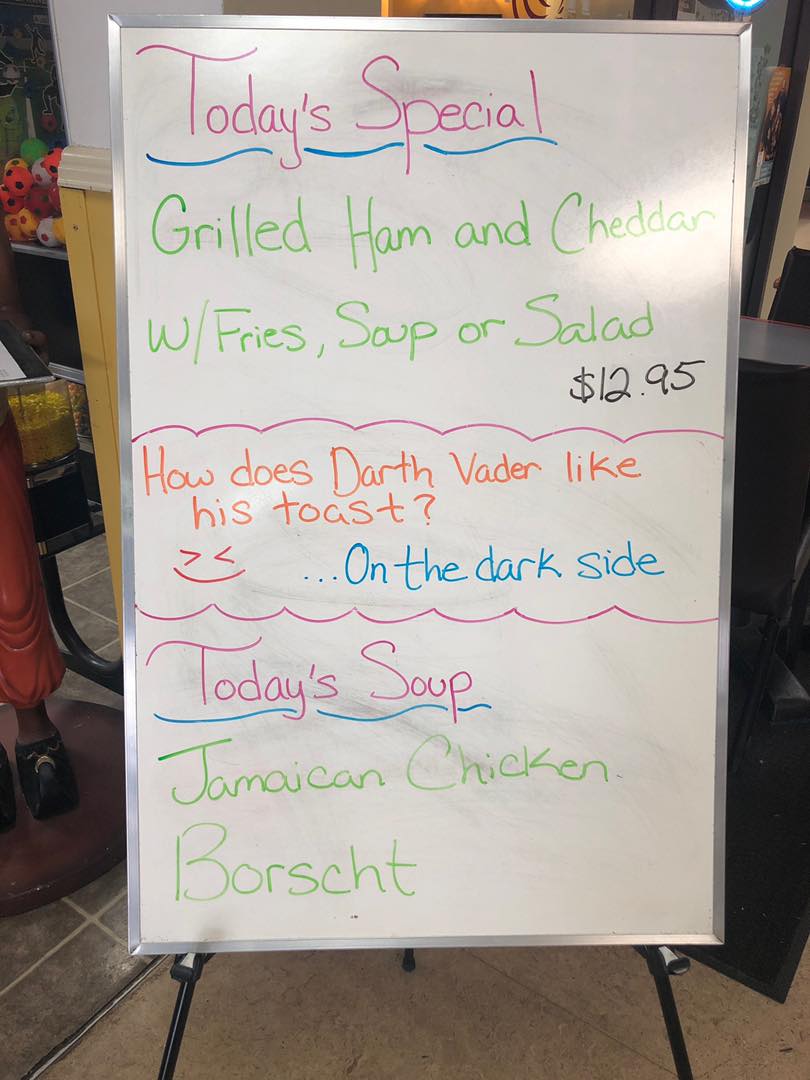 Today's Special
Grilled Ham and Cheddar
W/Fries, Soup or Salad
$12.95
How does Darth Vader like
his toast?
>< ...On the dark side
Today's Soup
Jamaican Chicken
Borscht